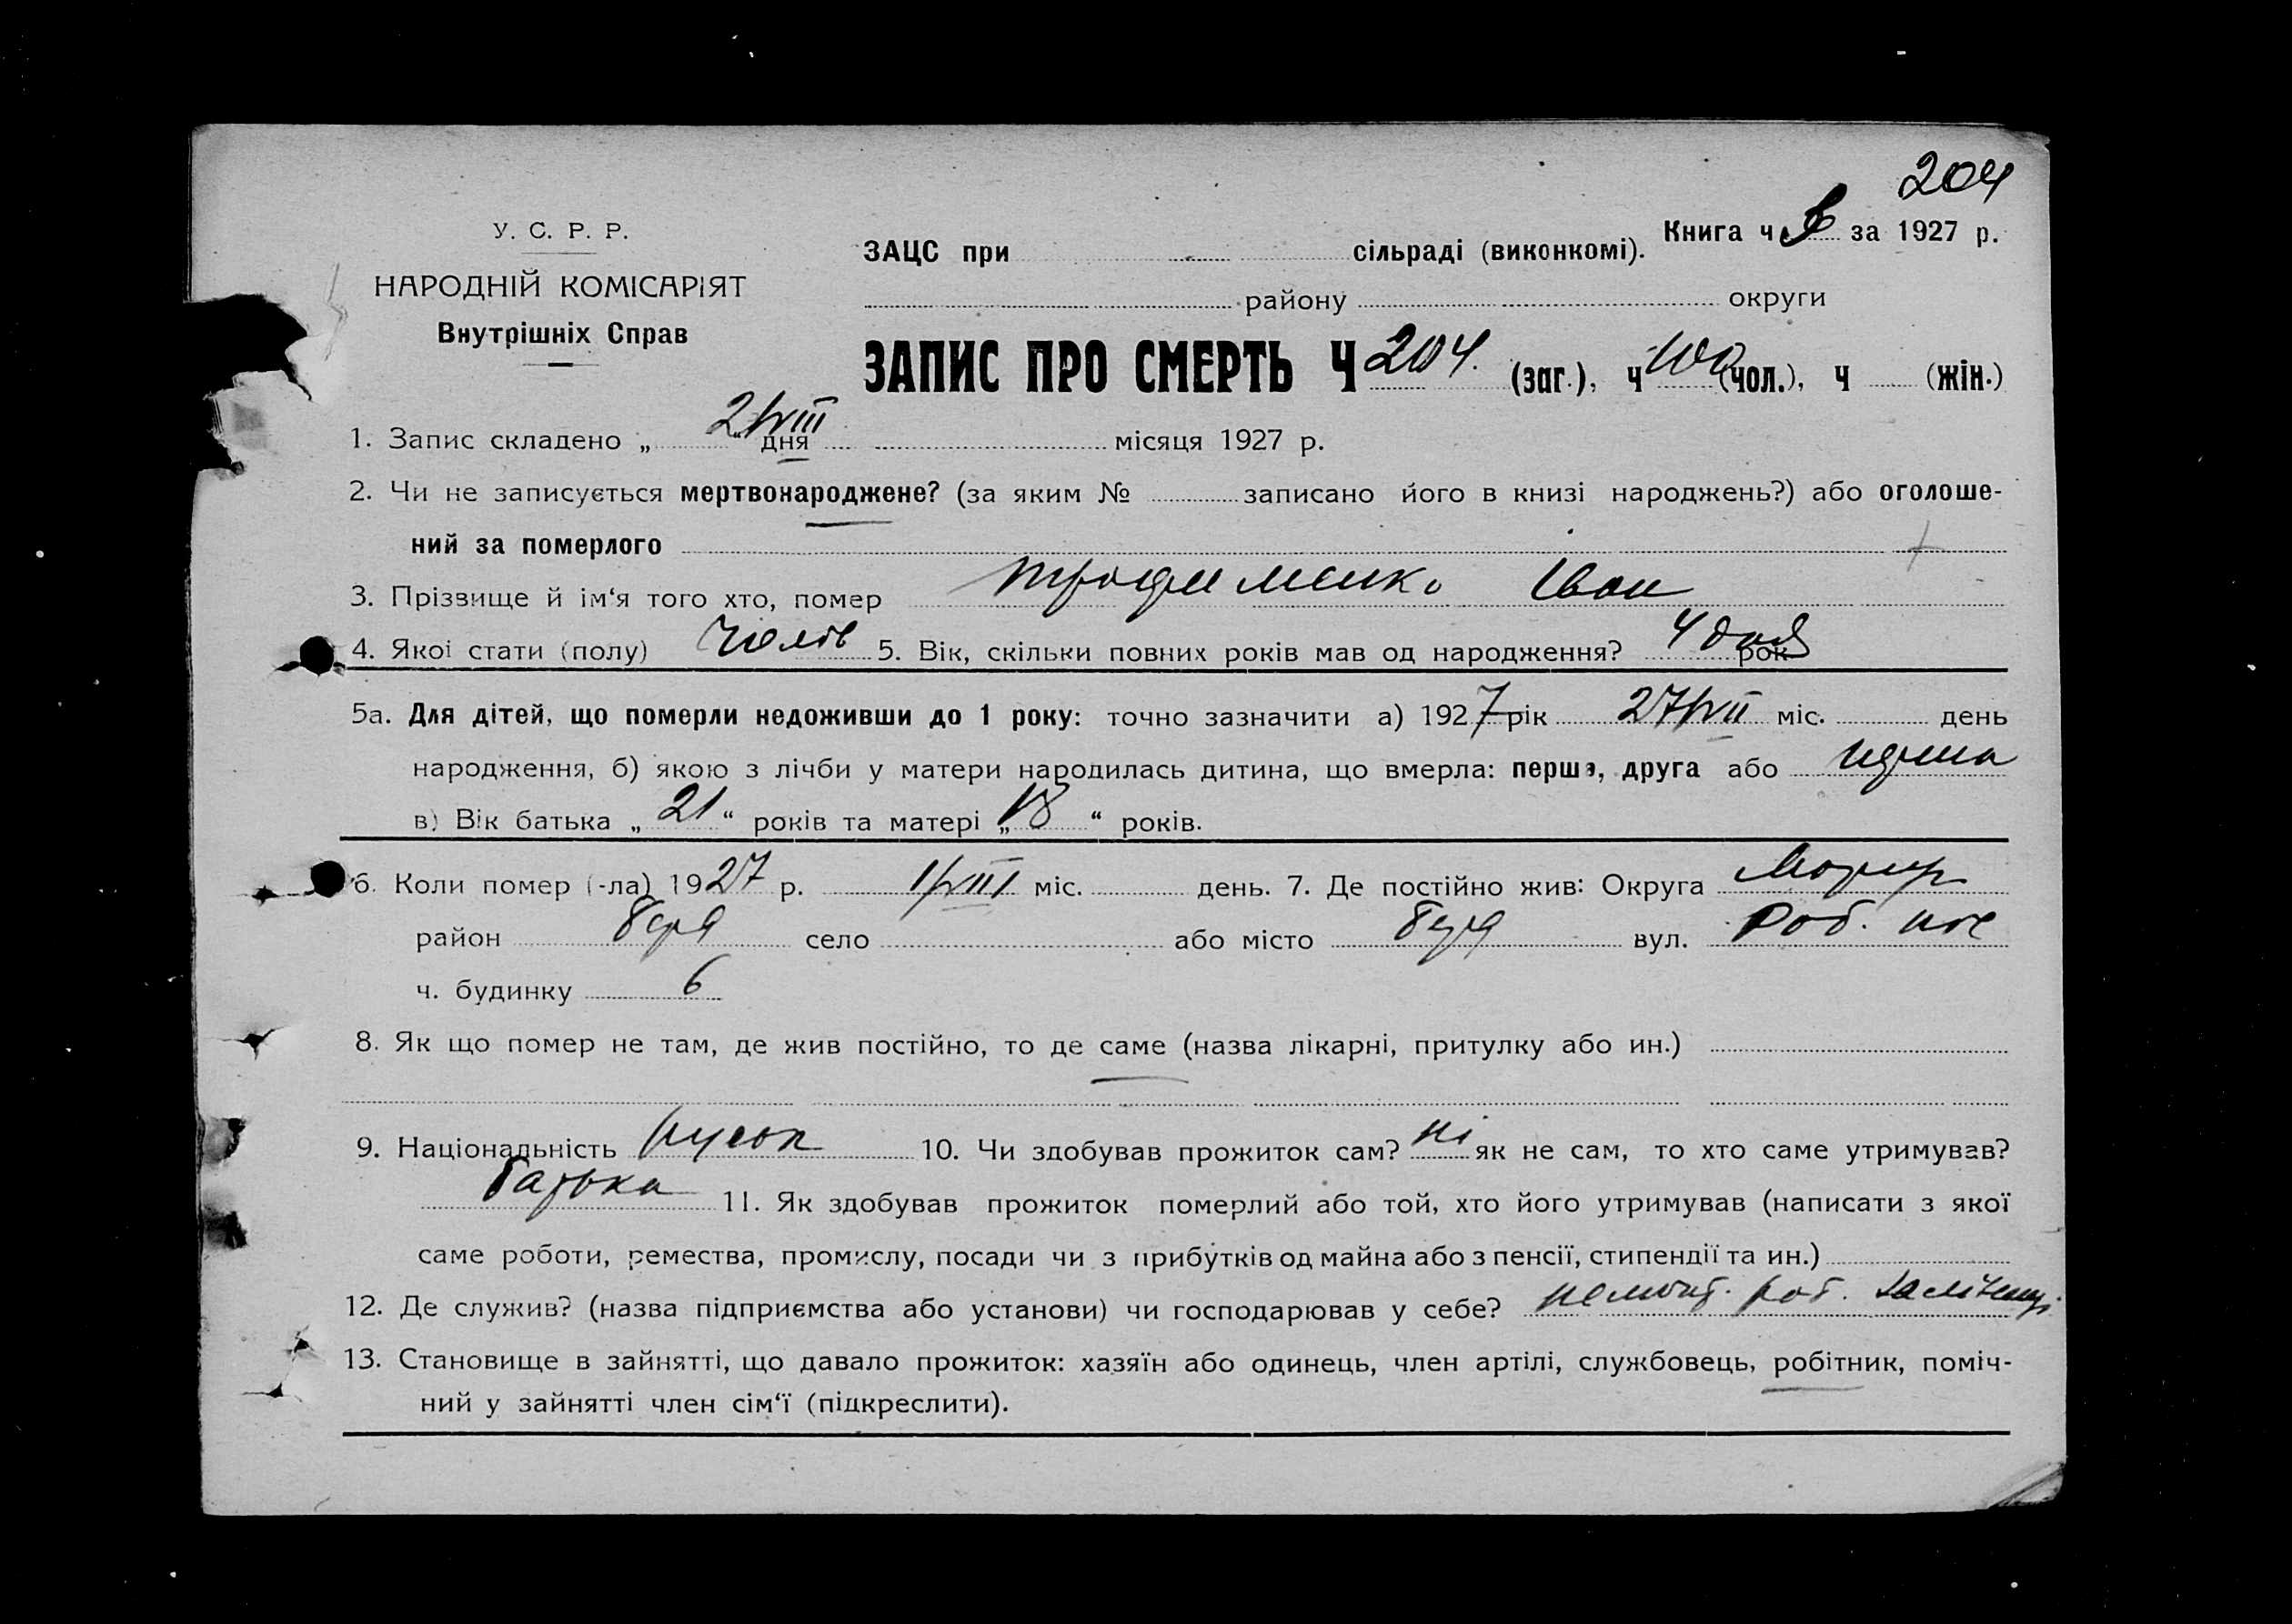 204
У. С. Р. Р.
НАРОДНІЙ КОМІСАРІЯТ
Внутрішніх Справ
Книга ч за 1927 р.
ЗАЦС при сільраді (виконкомі).
району округи
ЗАПИС ПРО СМЕРТЬ Ч 204. (заг.), ч 100 (чол.), ч (жін.)
1. Запис складено „ 2/VIII " дня місяця 1927 р.
2. Чи не записується мертвонароджене? (за яким № записано його в книзі народжень?) або оголоше-
ний за померлого
3. Прізвище й ім‘я того хто, помер Трофименко Іван
4. Якої стати (полу) Чолов 5. Вік, скільки повних років мав од народження? 4 дня рок
5а. Для дітей, що померли недоживши до 1 року: точно зазначити а) 1927 рік 27/VII міс. день
народження, б) якою з лічби у матери народилась дитина, що вмерла: перша, друга або перша
в) Вік батька „ 21 “ років та матері „ 18 “ років.
6. Коли помер (-ла) 1927 р. 1/VIII міс. день. 7. Де постійно жив: Округа
район село або місто вул. Роб.
ч. будинку 6
8. Як що помер не там, де жив постійно, то де саме (назва лікарні, притулку або ин.)
9. Національність 10. Чи здобував прожиток сам? ні як не сам, то хто саме утримував?
батько 11. Як здобував прожиток померлий або той, хто його утримував (написати з якої
саме роботи, ремества, промислу, посади чи з прибутків од майна або з пенсії, стипендії та ин.)
12. Де служив? (назва підприємства або установи) чи господарював у себе? ремонт. роб.
13. Становище в зайнятті, що давало прожиток: хазяїн або одинець, член артілі, службовець, робітник, поміч-
ний у зайнятті член сім‘ї (підкреслити).